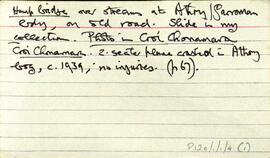 Hump bridge over stream at Athry/Garroman
bdry, on old road. Slide in my
collection. Photo in Croí Chonamara
Croí Chonamara. 2-seater plane crashed in Athry
bog, c. 1939, no injuries. (p 67).
P120/1/1/4 (i)